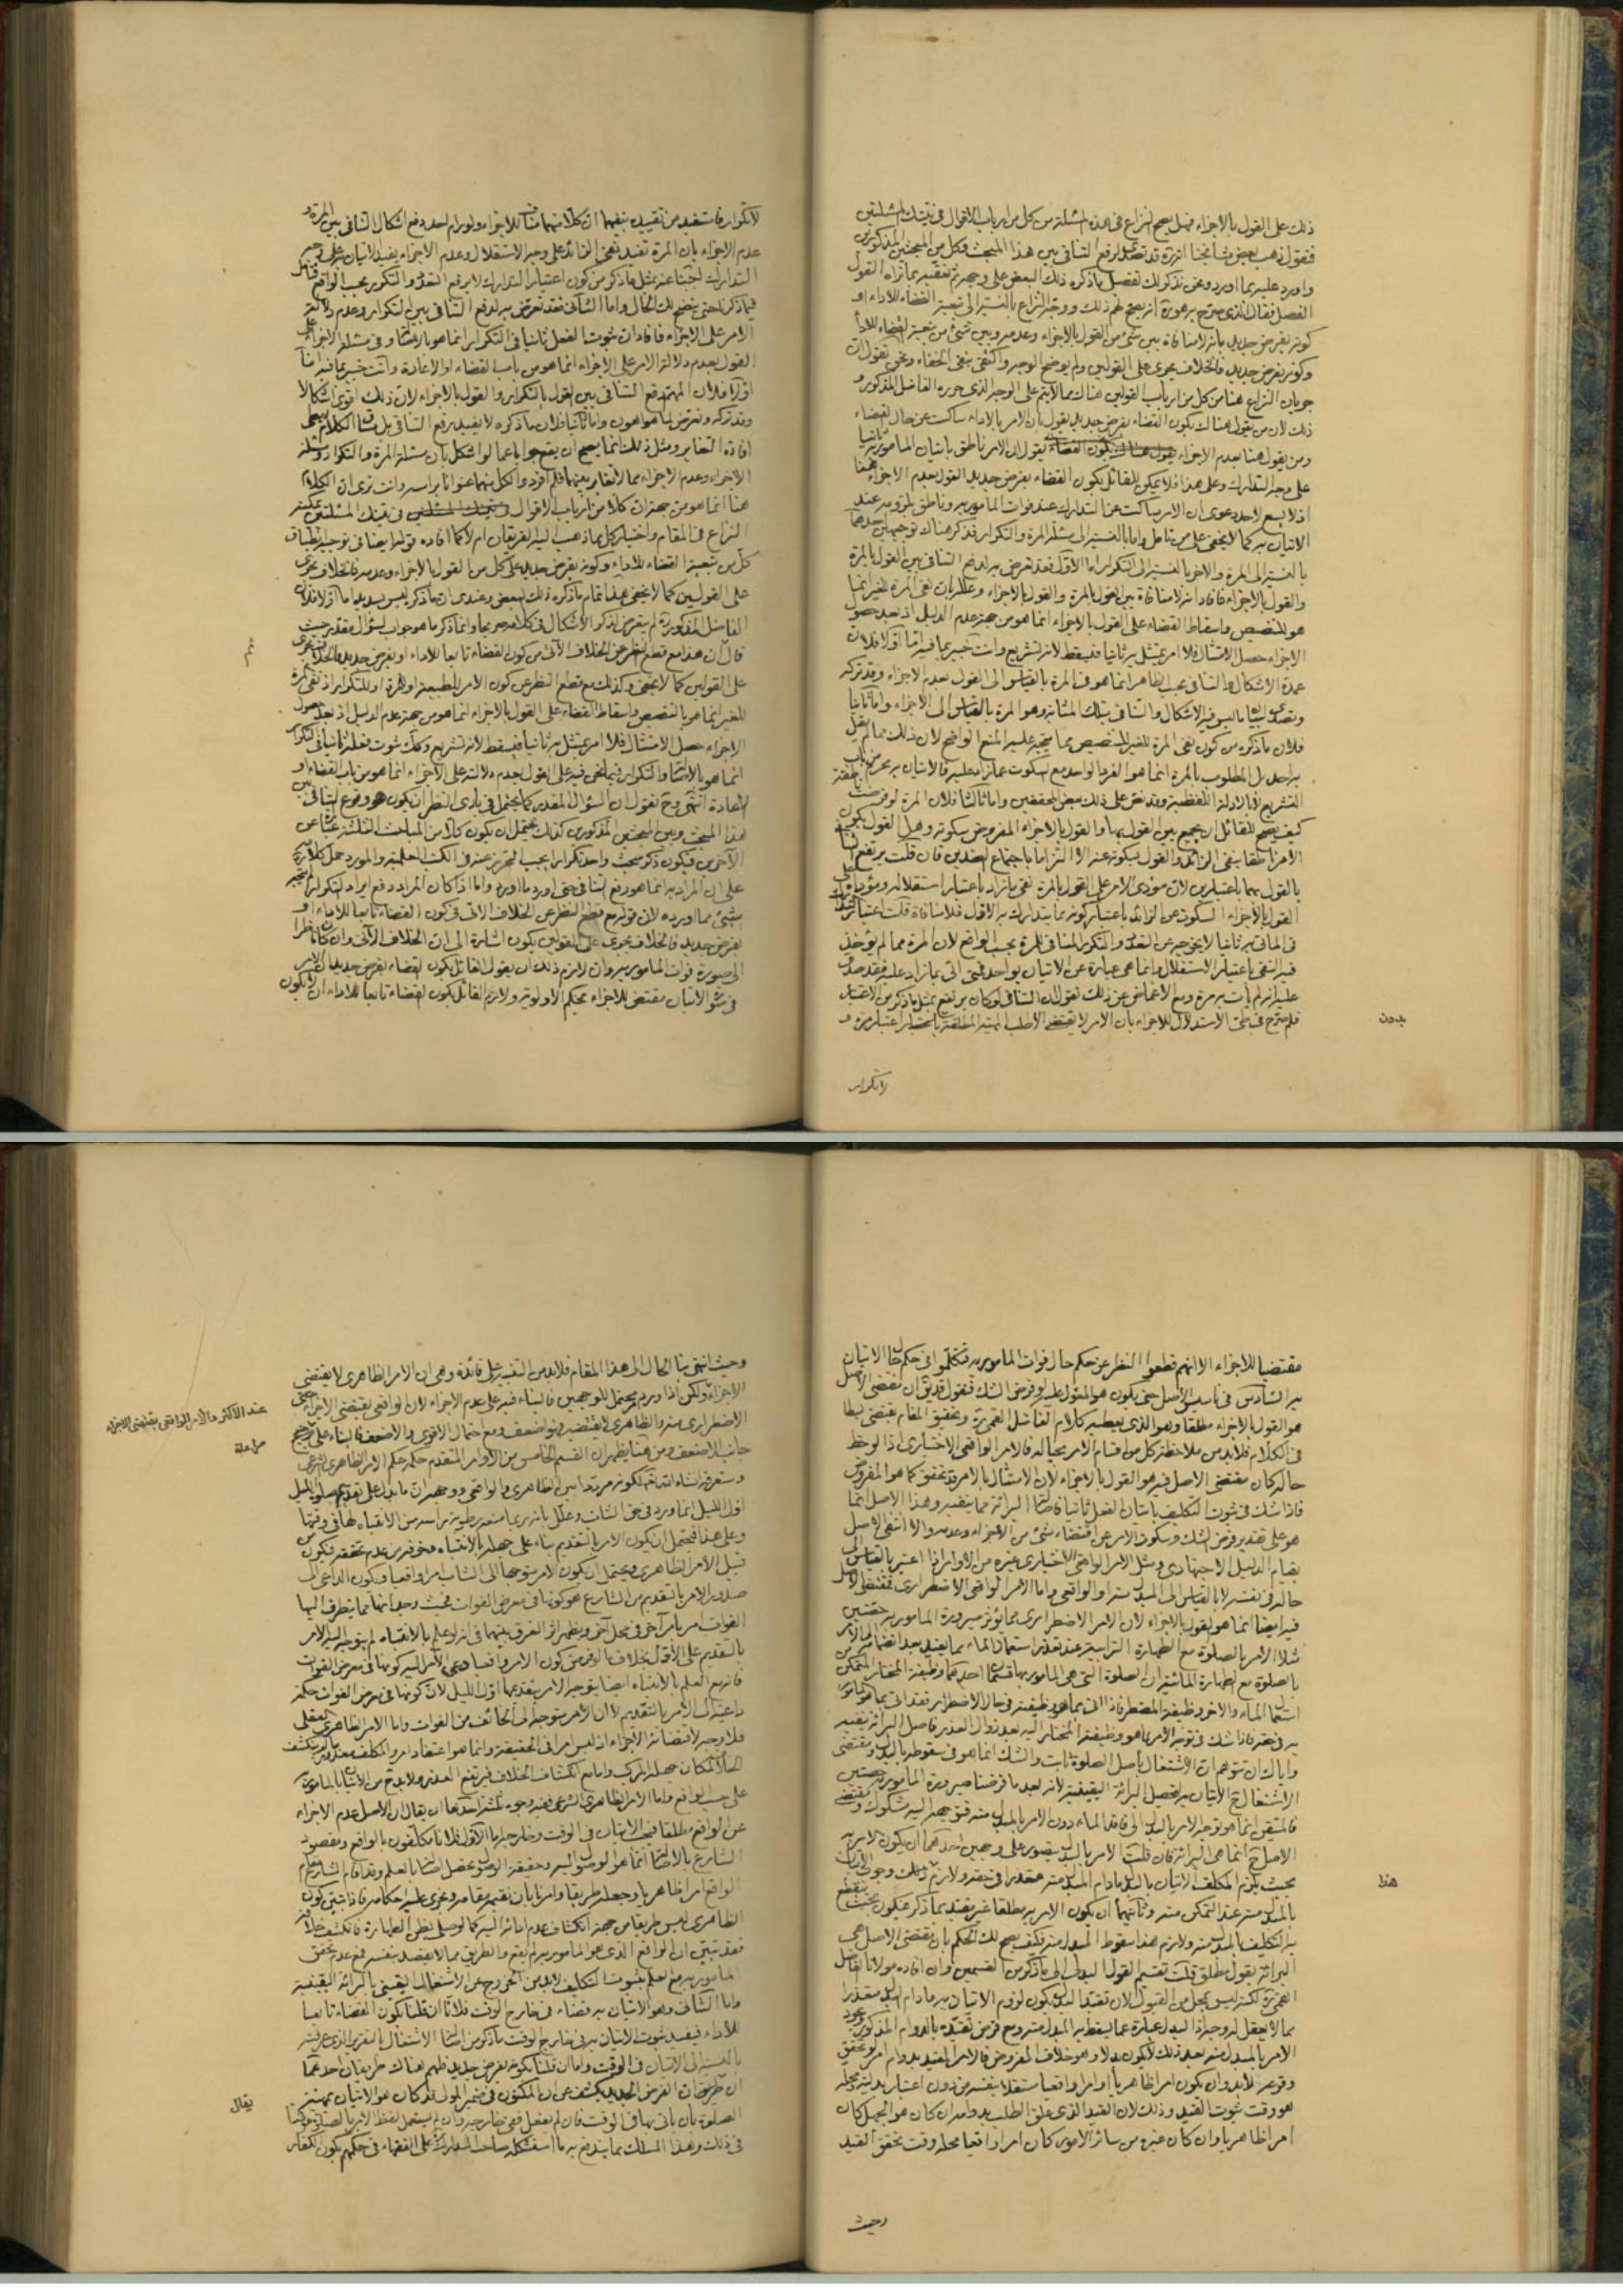 ذلك على القول بالاجزاء فهل يصح النزاع فى هذه المسئلة من كل من ارباب الاقوال فى تينك المسئلتين
فنقول ذهب بعض مشايخنا انه قد تصدى لرفع التنافى بين هذا المبحث وكل من المبحثين المذكورين
واورد عليه بما اورد ونحن نذكر لك تفصيل ما ذكره ذلك البعض على وجهه ثم نعقبه بما نراه القول
الفصل فقال الذى صرح به هو انه يصح لهم ذلك ووجه النزاع بالنسبة الى تبعية القضاء للاداء او
كونه بفرض جديد بانه لا منافاة بين شئ من القول بالاجزاء وعدمه وبين شئ من تبعية القضاء للاداء
وكونه بفرض جديد فالخلاف يجرى على القولين ولم يوضح الوجه واكتفى بنفى الخفاء ونحن نقول ان
جريان النزاع هنا من كل من ارباب القولين هناك مما لا يتم على الوجه الذى حرره الفاضل المذكور و
ذلك لان من يقول هناك بكون القضاء بفرض جديد يقول بان الامر بالاداء ساكت عن حال القضاء
ومن يقول هنا بعدم الاجزاء يقول ان الامر ناطق باتيان المامور به ثانيا
على وجه التدارك وعلى هذا فلا يمكن للقائل بكون القضاء بفرض جديد القول بعدم الاجزاء هنا
اذ لا يسع لاحد دعوى ان الامر ساكت عن التدارك عند فوات المامور به وناطق بلزومه عند
الاتيان به كما لا يخفى على من تامل واما بالنسبة الى مسئلة المرة والتكرار فذكر هناك توجيهين احدهما
بالنسبة الى المرة والاخر بالنسبة الى التكرار اما الاول فقد تعرض به لدفع التنافى بين القول بالمرة
والقول بالاجزاء فافاد انه لا منافاة بين القول بالمرة والقول بالاجزاء وعلله بان نفى المرة للغير انما
هو بالتنصيص واسقاط القضاء على القول بالاجزاء انما هو من جهة عدم الدليل اذ بعد حصول
الاجزاء حصل الامتثال فلا امر يمتثل به ثانيا فيسقط لانه تشريع وانت خبير بما فيه اما اولا فلان
عمدة الاشكال والتنافى بحسب الظاهر انما هو فى المرة بالقياس الى القول بعدم الاجزاء وقد تركه
وتصدى لبيان ما ليس فيه الاشكال والتنافى بتلك المثابة وهو المرة بالقياس الى الاجزاء واما ثانيا
فلان ما ذكره من كون نفى المرة للغير بالتنصيص مما يتجه عليه المنع الواضح لان ذلك مما لم يقل
به احد بل المطلوب بالمرة انما هو الفرد الواحد مع السكوت عما زاد عليه فالاتيان به محرم من باب
التشريع لا بالادلة اللفظية وقد نص على ذلك بعض المحققين واما ثالثا فلان المرة لو فرضت
كيف يصح للقائل ان يجمع بين القول بها والقول بالاجزاء المفروض سكوته وهل القول بكون
الامر ناطقا بنفى الزائد والقول بسكوته عنه الا التزاما باجتماع الضدين فان قلت يرتفع التنافى
بالقول بهما باعتبارين لان مؤدى الامر على القول بالمرة نفى ما زاد باعتبار استقلاله ومؤداه على
القول بالاجزاء السكوت عن الزائد باعتبار كونه مما يتدارك به الاول فلا منافاة قلت اعتبار التدارك
فى الماتى به ثانيا لا يخرجه عن التعدد والتكرر المنافى للمرة بحسب الواقع لان المرة مما لم يؤخذ
فيه النفى باعتبار الاستقلال وانما هى عبارة عن الاتيان بواحد فمتى اتى بما زاد عليه فقد صدق
عليه انه لم يات به مرة ومع الاغماض عن ذلك نقول ان التنافى لو كان يرتفع بمثل ما ذكر من الاعتبار
فلم صرح فى طى الاستدلال للاجزاء بان الامر لا يقتضى الا طلب المهية المطلقة باعتبار مرة و
بدون
لا تكرار
لا تكرار فاستفيد من تقييده بنفيهما ان كلا منهما مناف للاجزاء ولو رام احد دفع اشكال التنافى بين المرة و
عدم الاجزاء بان المرة تفيد نفى الزائد على وجه الاستقلال وعدم الاجزاء يفيد الاتيان به على وجه
التدارك اجبنا عنه بمثل ما ذكر من كون اعتبار التدارك لا يرفع التعدد والتكرر بحسب الواقع فتامل
فيما ذكرنا حتى يتضح لك الحال واما الثانى فقد تعرض به لدفع التنافى بين التكرار وعدم دلالة
الامر على الاجزاء فافاد ان ثبوت الفعل ثانيا فى التكرار انما هو بالاصالة وفى مسئلة الاجزاء على
القول بعدم دلالة الامر على الاجزاء انما هو من باب القضاء او الاعادة وانت خبير بما فيه اما
اولا فلان المهم دفع التنافى بين القول بالتكرار والقول بالاجزاء لان ذلك اقوى اشكالا
وقد تركه وتعرض لما هو اهون واما ثانيا فلان ما ذكره لا يفيد رفع التنافى بل مساق الكلام يعطى
افادة التغاير ومثل ذلك انما يصح ان يقع جوابا عما لو اشكل بان مسئلة المرة والتكرار ومسئلة
الاجزاء وعدم الاجزاء مما لا تغاير بينهما فلم افردوا لكل منهما عنوانا براسه وانت ترى ان الكلام
هنا انما هو من جهة ان كلا من ارباب الاقوال فى تينك المسئلتين يمكنه
النزاع فى المقام واختيار كل ما ذهب اليه الفريقان ام لا كما افاده قوله ايضا فى توجيه انطباق
كل من تبعية القضاء للاداء وكونه بفرض جديد على كل من القول بالاجزاء وعدمه فالخلاف يجرى
على القولين كما لا يخفى هذا تمام ما ذكره ذلك البعض وعندى ان ما ذكره ليس بسديد اما اولا فلان
الفاضل المذكور لم يتعرض لذكر الاشكال فى كلامه صريحا وانما ذكر ما هو جواب لسؤال مقدر حيث
قال ان هذا مع قطع النظر عن الخلاف الآتى من كون القضاء تابعا للاداء او بفرض جديد فالخلاف يجرى
على القولين كما لا يخفى وكذلك مع قطع النظر عن كون الامر للطبيعة او للمرة او للتكرار اذ نفى المرة
للغير انما هو بالتنصيص واسقاط القضاء على القول بالاجزاء انما هو من جهة عدم الدليل اذ بعد حصول
الاجزاء حصل الامتثال فلا امر يمتثل به ثانيا فيسقط لانه تشريع وكذلك ثبوت فعله ثانيا فى التكرار
انما هو بالاصالة والتكرار فيما نحن فيه على القول بعدم دلالته على الاجزاء انما هو من باب القضاء او
الاعادة انتهى وح نقول ان السؤال المقدر كما يحتمل فى بادى النظر ان يكون هو وقوع التنافى بين
هذا المبحث وبين المبحثين المذكورين كذلك يحتمل ان يكون كل من المباحث الثلثة غنيا عن
الآخرين فيكون ذكر مبحث واحد تكرارا يجب التحرز عنه فى الكتب العلمية والمورد حمل كلامه
على ان المراد به انما هو رفع التنافى حتى اورد ما اورد واما اذا كان المراد دفع ايراد التكرار لم يتجه
شئ مما اورده لان قوله مع قطع النظر عن الخلاف الآتى فى كون القضاء تابعا للاداء او
بفرض جديد فالخلاف يجرى على القولين يكون اشارة الى ان الخلاف الآتى وان كان ناظرا
الى صورة فوات المامور به وان لازم ذلك ان يقول القائل بكون القضاء بفرض جديد ان الامر
فى مثل الاتيان مقتض للاجزاء بحكم الاولوية ولازم القائل بكون القضاء تابعا للاداء ان لا يكون
مقتضيا للاجزاء الا انهم قطعوا النظر عن حكم حال فوات المامور به فتكلموا فى حكم حال الاتيان
به السادس فى تاسيس الاصل حتى يكون هو المعول عليه لو فرض الشك فنقول قد يق ان مقتضى الاصل
هو القول بالاجزاء مطلقا وهو الذى يعطيه كلام الفاضل القمى ره وتحقيق المقام يقتضى بسطا
فى الكلام فلا بد من ملاحظة كل من اقسام الامر بحياله فالامر الواقعى الاختيارى اذا لوحظ
حاله كان مقتضى الاصل فيه هو القول بالاجزاء لان الامتثال بالامر قد تحقق كما هو المفروض
فاذا شك فى ثبوت التكليف باتيان الفعل ثانيا فاصالة البرائة مما ينفيه وهذا الاصل انما
هو على تقدير فرض الشك وسكوت الامر عن اقتضاء شئ من الاجزاء وعدمه والا انتفى الاصل
بقيام الدليل الاجتهادى ومثل الامر الواقعى الاختيارى غيره من الاوامر اذا اعتبر بالقياس الى
حاله فى نفسه لا بالقياس الى المبدل منه او الواقعى واما الامر الواقعى الاضطرارى فمقتضى الاصل
فيه ايضا انما هو القول بالاجزاء لان الامر الاضطرارى مما يؤثر صيرورة المامور به حصتين
مثلا الامر بالصلوة مع الطهارة الترابية عند تعذر استعمال الماء مما يفيد بعد انضمامه الى الامر
بالصلوة مع الطهارة المائية ان الصلوة التى هى المامور بها قسمان احدهما وظيفة المختار المتمكن من
استعمال الماء والاخر وظيفة المضطر فاذا اتى بما هو وظيفته فى حال الاضطرار فقد اتى بما هو المامور
به فى حقه فاذا شك فى توجه الامر بما هو وظيفة المختار اليه بعد زوال العذر فاصل البرائة ينفيه
واياك ان تتوهم ان الاشتغال باصل الصلوة ثابت والشك انما هو فى سقوطه بالبدل ومقتضى
الاشتغال ح الاتيان به لتحصيل البرائة اليقينية لانه بعد ما فرضنا صيرورة المامور به حصتين
فالمتيقن انما هو توجه الامر بالبدل الى فاقد الماء دون الامر بالمبدل منه فتوجهه اليه مشكوك ومقتضى
الاصل ح انما هى البرائة فان قلت الامر بالبدل يتصور على وجهين احدهما ان يكون الامر به
بحيث يلزم المكلف الاتيان بالبدل ما دام المبدل منه متعذرا فى حقه ولازم ذلك وجوب الاتيان
بالمبدل منه عند التمكن منه وثانيهما ان يكون الامر به مطلقا غير مقيد بما ذكر فيكون بحيث ينقطع
به التكليف بالمبدل منه ولازم هذا سقوط المبدل منه فكيف يصح لك الحكم بان مقتضى الاصل هى
البرائة بقول مطلق قلت تقسيم القول البدلى الى ما ذكر من القسمين وان افاده مولانا الفاضل
القمى ره لكنه ليس بمحل من القبول لان تقييد البدل بكون لزوم الاتيان به ما دام المبدل متعذرا
مما لا يعقل له وجه اذ البدل عبارة عما يسقط به المبدل منه ومع فرض تقييده بالدوام المذكور وعود
الامر بالمبدل منه بعد ذلك لا يكون بدلا وهو خلاف المفروض فالامر المقيد بدوام امر لو تحقق
وقوعه لا بد وان يكون امرا ظاهريا او امرا واقعيا مستقلا بنفسه من دون اعتبار بدلية ومحله
هو وقت ثبوت القيد وذلك لان القيد الذى علق الطلب بدوامه ان كان هو الجهل كان
امرا ظاهريا وان كان غيره من سائر الامور كان امرا واقعيا محله وقت تحقق القيد
هذا
وحيث
وحيث انتهى بنا الحال الى هذا المقام فلا بد من التنبيه على فائدة وهى ان الامر الظاهرى لا يقتضى
الاجزاء ولكن اذا ورد امر محتمل للوجهين فالبناء فيه على عدم الاجزاء لان الواقعى يقتضى الاجزاء حتى
الاضطرارى منه والظاهرى لا يقتضيه فهو اضعف ومع احتمال الاقوى والاضعف فالبناء على ترجيح
جانب الاضعف ومن هنا يظهر ان القسم الخامس من الاوامر المتقدم حكمه حكم الامر الظاهرى الشرعى
وستعرفه انشاء الله تع لكونه مرددا بين الظاهرى والواقعى ووجهه ان ما دل على تقديم صلوة الليل
اول الليل انما ورد فى حق الشاب وعلل بانه ربما منعه رطوبة راسه من الانتباه لها فى وقتها
وعلى هذا فيحتمل ان يكون الامر بالتقديم بناء على جهله بالانتباه وخوفه من عدم تحققه فيكون من
قبيل الامر الظاهرى ويحتمل ان يكون الامر متوجها الى الشاب امرا واقعيا ويكون الداعى الى
صدور الامر بالتقديم من الشارع هو كونها فى معرض الفوات بحيث وجدانها مما يتطرق اليها
الفوات امر بامر آخر فى محل آخر ويظهر اثر الفرق بينهما فى انه لو علم بالانتباه لم يتوجه اليه الامر
بالتقديم على الاول بخلاف ما لو فرض كون الامر واقعيا وداعى الامر اليه كونها فى معرض الفوات
فانه مع العلم بالانتباه ايضا يتوجه الامر بتقديمها اول الليل لان كونها فى معرض الفوات حكمة
داعية الى الامر بالتقديم لا ان الامر متوجه الى الخائف من الفوات واما الامر الظاهرى العقلى
فلا وجه لاقتضائه الاجزاء اذ ليس امرا فى الحقيقة وانما هو اعتقاد امر والمكلف معذور ما لم ينكشف
الخلاف لمكان جهله المركب واما مع انكشاف الخلاف فيرتفع العذر ولا بد ح من الاتيان بالمامور به
على حسب الواقع واما الامر الظاهرى الشرعى ففيه وجوه ثلثة احدها ان يقال ان الاصل عدم الاجزاء
عن الواقع مطلقا فيجب الاتيان فى الوقت وخارجه اما الاول فلانا مكلفون بالواقع ومقصود
الشارع بالاصالة انما هو الوصول اليه وحقيقة الوصول تحصل اصالة بالعلم وقد اقام الشارع مقام
الواقع امرا ظاهريا وجعله طريقا وامرنا بان نقيمه مقامه ونجرى عليه احكامه فاذا تبين كون
الظاهرى ليس طريقا من جهة انكشاف عدم ايصاله اليه كما لو صلى بظن الطهارة فانكشف خلافه
فقد تبين ان الواقع الذى هو المامور به لم يقع والطريق مما لا يقصد بنفسه فمع عدم تحقق
المامور به مع العلم بثبوت التكليف لا بد من الخروج عن الاشتغال اليقينى بالبرائة اليقينية
واما الثانى وهو الاتيان به قضاء فى خارج الوقت فلانا ان قلنا بكون القضاء تابعا
للاداء فيفيد ثبوت الاتيان به فى خارج الوقت ما ذكر من اصالة الاشتغال بالتقرير الذى عرفته
بالنسبة الى الاتيان فى الوقت واما ان قلنا بكونه بفرض جديد فلهم هناك طريقان احدهما
ان يقال ان الفرض الجديد يكشف عن ان المكنون فى ضمير المولى قد كان هو الاتيان بمهية
الصلوة بان ياتى بها فى الوقت فان لم يفعل ففى خارجه وان لم يستعمل لفظ الامر بالصلوة مركبا
فى ذلك وبهذا المسلك مما يندفع به ما استشكله صاحب المدارك على الفقهاء فى حكمهم بكون الكفار
عند الاكثر والامر الواقعى يقتضى الاجزاء
مراعاة
يقال